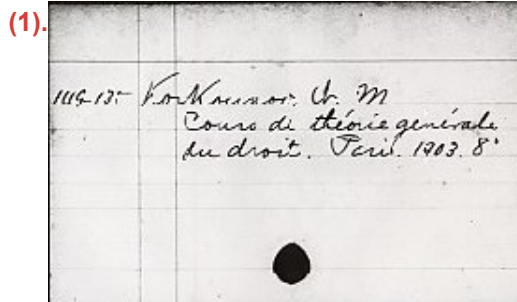 (1).
Korkounov. N. M
Cours de théorie genérale
du droit. Paris. 1903. 8°